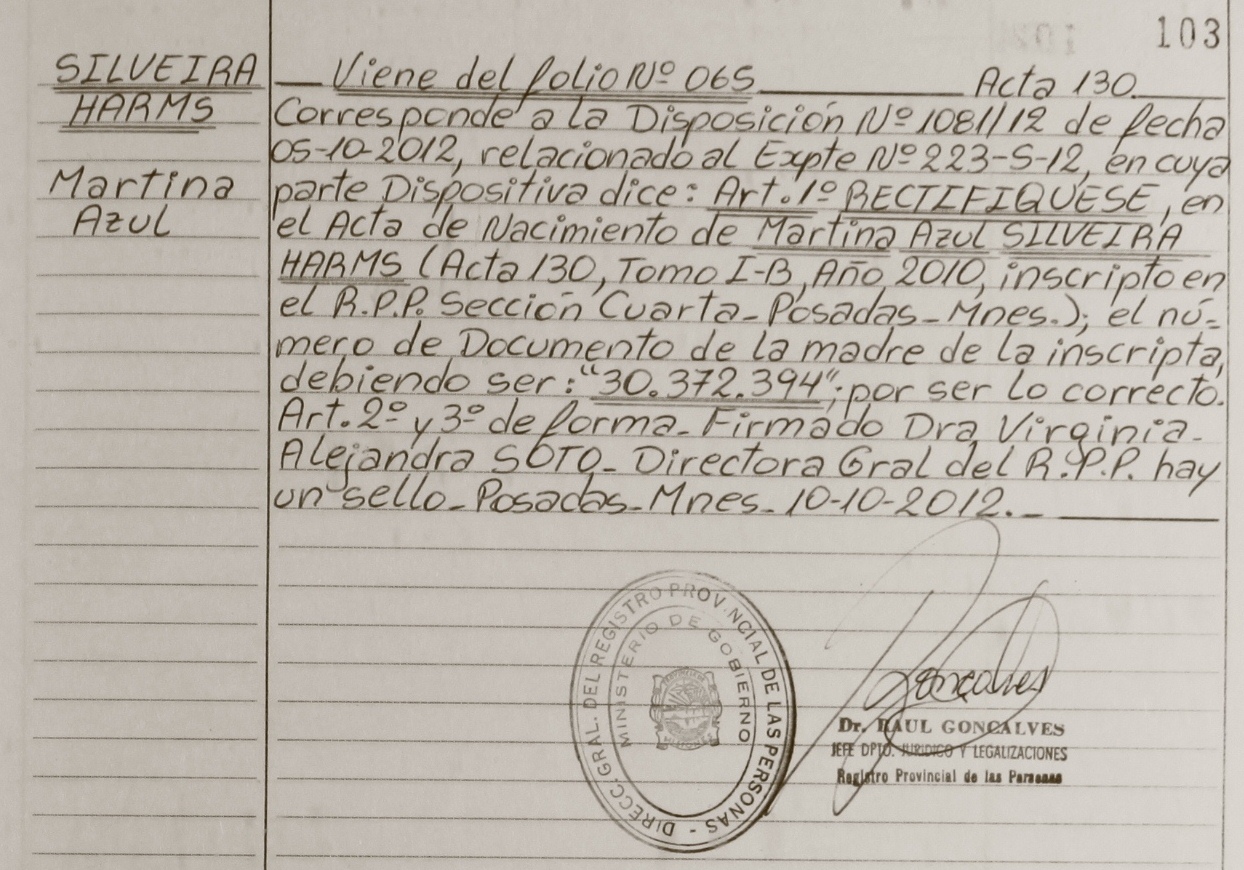 103
SILVEIRA
HARMS
Martina
Azul
Viene del folio Nº 065 Acta 130.
Corresponde a la Disposición Nº 1081/12 de fecha
05-10-2012, relacionado al Expte Nº 223-S-12, en cuya
parte Dispositiva dice: Art. 1º RECTIFIQUESE, en
el Acta de Nacimiento de Martina Azul SILVEIRA
HARMS (Acta 130, Tomo I-B, Año 2010, inscripto en
el R.P.P. Sección Cuarta-Posadas-Mnes.); el nú-
mero de Documento de la madre de la inscripta,
debiendo ser: "30.372.394"; por ser lo correcto.
Art. 2º y 3º de forma- Firmado Dra Virginia-
Alejandra SOTO- Directora Gral del R.P.P. hay
un sello- Posadas- Mnes- 10-10-2012.-
DIRECC. GRAL. DEL REGISTRO PROVINCIAL DE LAS PERSONAS -
MINISTERIO DE GOBIERNO
Goncalves
Dr. RAUL GONCALVES
JEFE DPTO. JURIDICO Y LEGALIZACIONES
Registro Provincial de las Personas